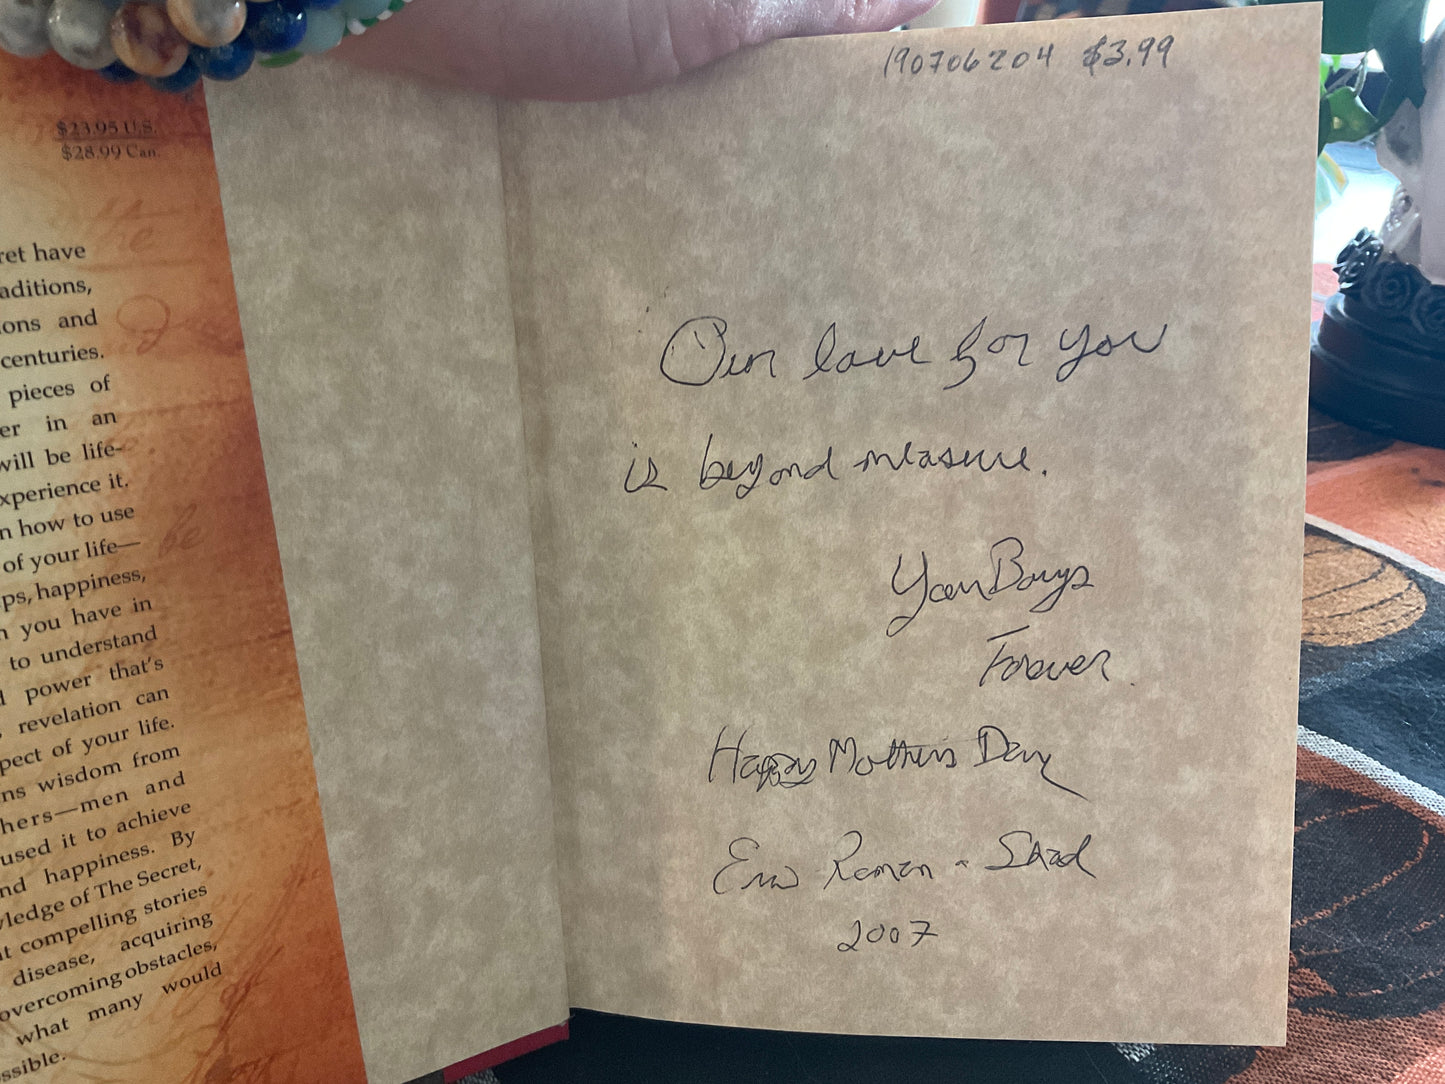 $23.95 U.S.
$28.99 Can.
ret have
aditions,
ions and
centuries.
pieces of
er in an
will be life-
xperience it.
n how to use
of your life—
ps, happiness,
n you have in
to understand
d power that's
revelation can
pect of your life.
ns wisdom from
hers—men and
used it to achieve
nd happiness. By
ledge of The Secret,
t compelling stories
disease, acquiring
overcoming obstacles,
what many would
ssible.
190706204 $3.99
Our love for you
is beyond measure.
Your Boys
Forever.
Happy Mothers Day
Eric Roman - Shad
2007